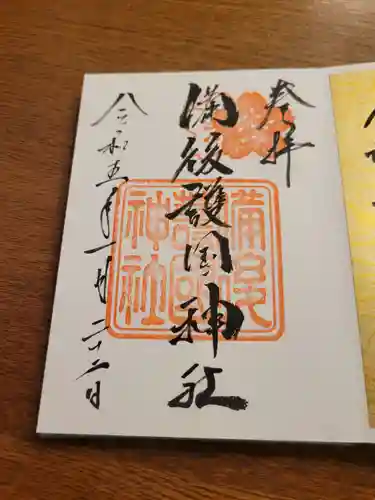 奉拝
備後護国神社
備後
護国
神社
令和五年一月二十二日